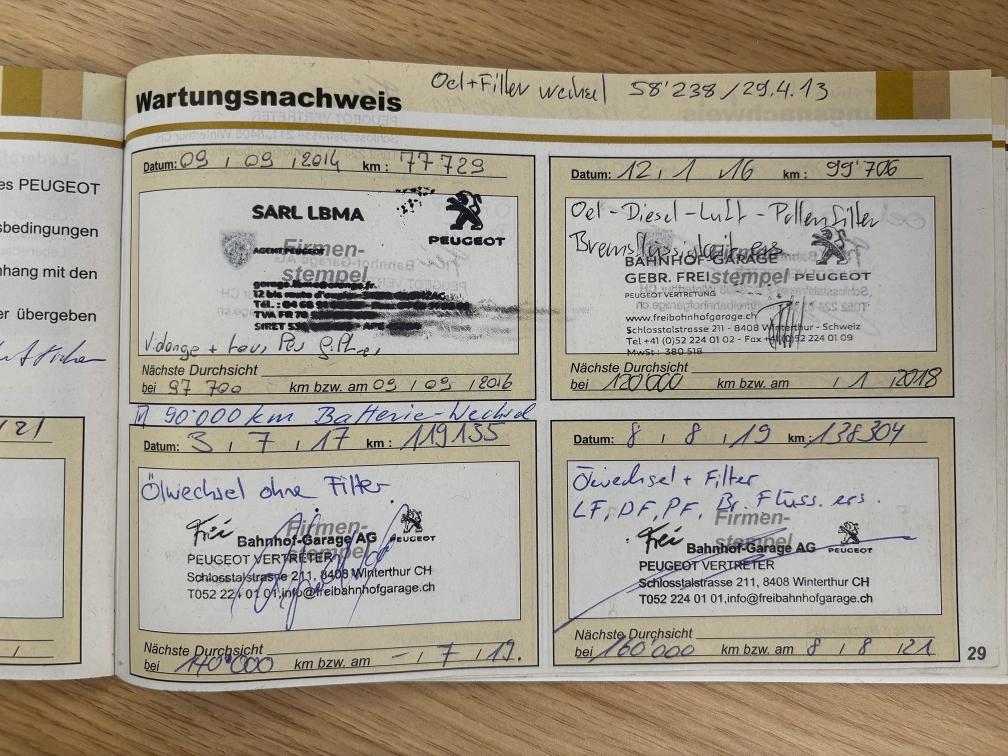 es PEUGEOT
sbedingungen
nhang mit den
er übergeben
/21
Wartungsnachweis
Oel+Filter wechsel 58'238/29.4.13
Datum: 09 , 09 , 2014 km : 77 729
SARL LBMA
PEUGEOT
AGENT PEUGEOT
Firmen-
stempel
12 bis
TÉL. : 04 66
TVA FR 70
SIRET 53 APE
Vidange +
Nächste Durchsicht
bei 97 700 km bzw. am 09 , 09 , 2016
90'000 km Batterie-Wechsel
Datum: 12 , 1 , 16 km : 99'706
Oel-Diesel-Luft-Pollenfilter
Bremsflüssigkeit ers
BAHNHOF-GARAGE
GEBR. FREI stempel PEUGEOT
PEUGEOT VERTRETUNG
www.freibahnhofgarage.ch
Schlosstalstrasse 211 - 8408 Winterthur - Schweiz
Tel +41 (0)52 224 01 02 - Fax +41 (0)52 224 01 09
MwSt : 380 518
Nächste Durchsicht
bei 120'000 km bzw. am , 1 , 2018
Datum: 3 , 7 , 17 km : 119135
Ölwechsel ohne Filter
Firmen-
stempel
Frei Bahnhof-Garage AG PEUGEOT
PEUGEOT VERTRETER
Schlosstalstrasse 211, 8408 Winterthur CH
T052 224 01 01,info@freibahnhofgarage.ch
Nächste Durchsicht
bei 140'000 km bzw. am - , 7 , 19.
Datum: 8 , 8 , 19 km : 138304
Ölwechsel + Filter
LF, DF, PF, Br. Flüss. ers.
Firmen-
stempel
Frei Bahnhof-Garage AG PEUGEOT
PEUGEOT VERTRETER
Schlosstalstrasse 211, 8408 Winterthur CH
T052 224 01 01,info@freibahnhofgarage.ch
Nächste Durchsicht
bei 160'000 km bzw. am 8 , 8 , 21
29